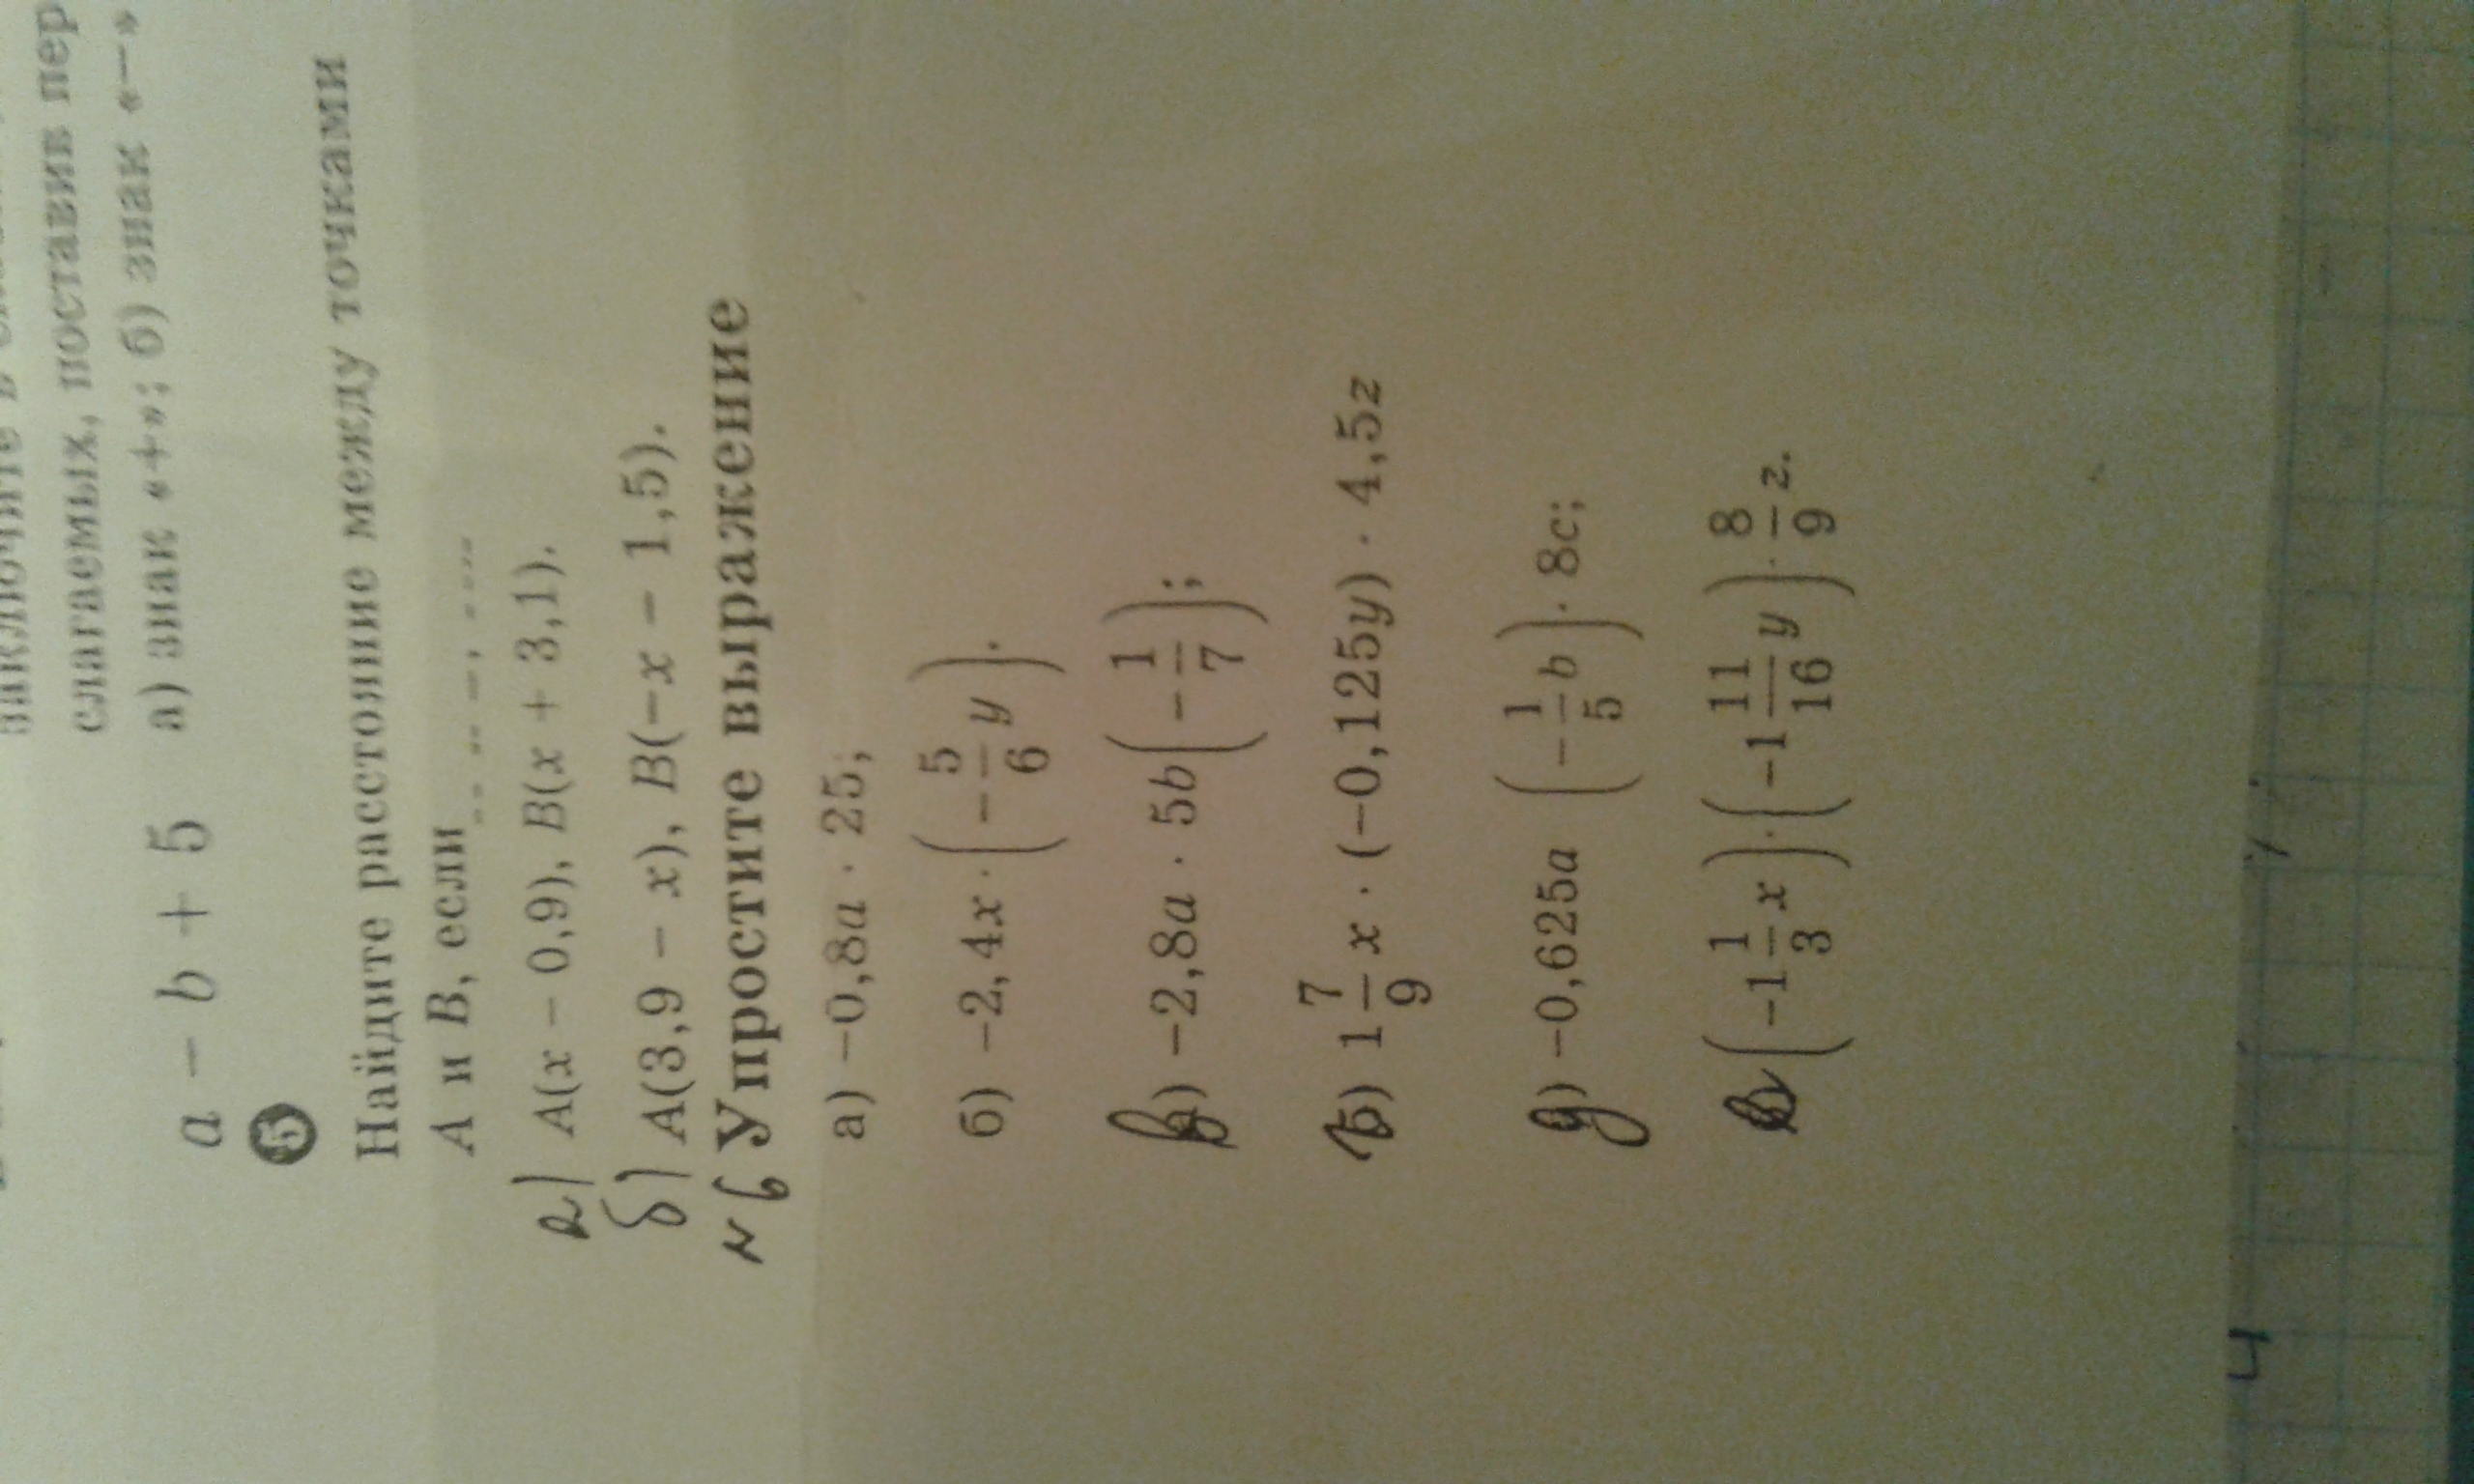 слагаемых, поставив пер
a − b + 5 а) знак «+»; б) знак «−»
5
Найдите расстояние между точками
A и B, если
а) A(x − 0,9), B(x + 3,1).
б) A(3,9 − x), B(−x − 1,5).
№6 Упростите выражение
а) −0,8a · 25;
б) −2,4x · (−5/6 y).
в) −2,8a · 5b(−1/7);
г) 1 7/9 x · (−0,125y) · 4,5z
д) −0,625a (−1/5 b) · 8c;
(−1 1/3 x) · (−1 11/16 y) · 8/9 z.